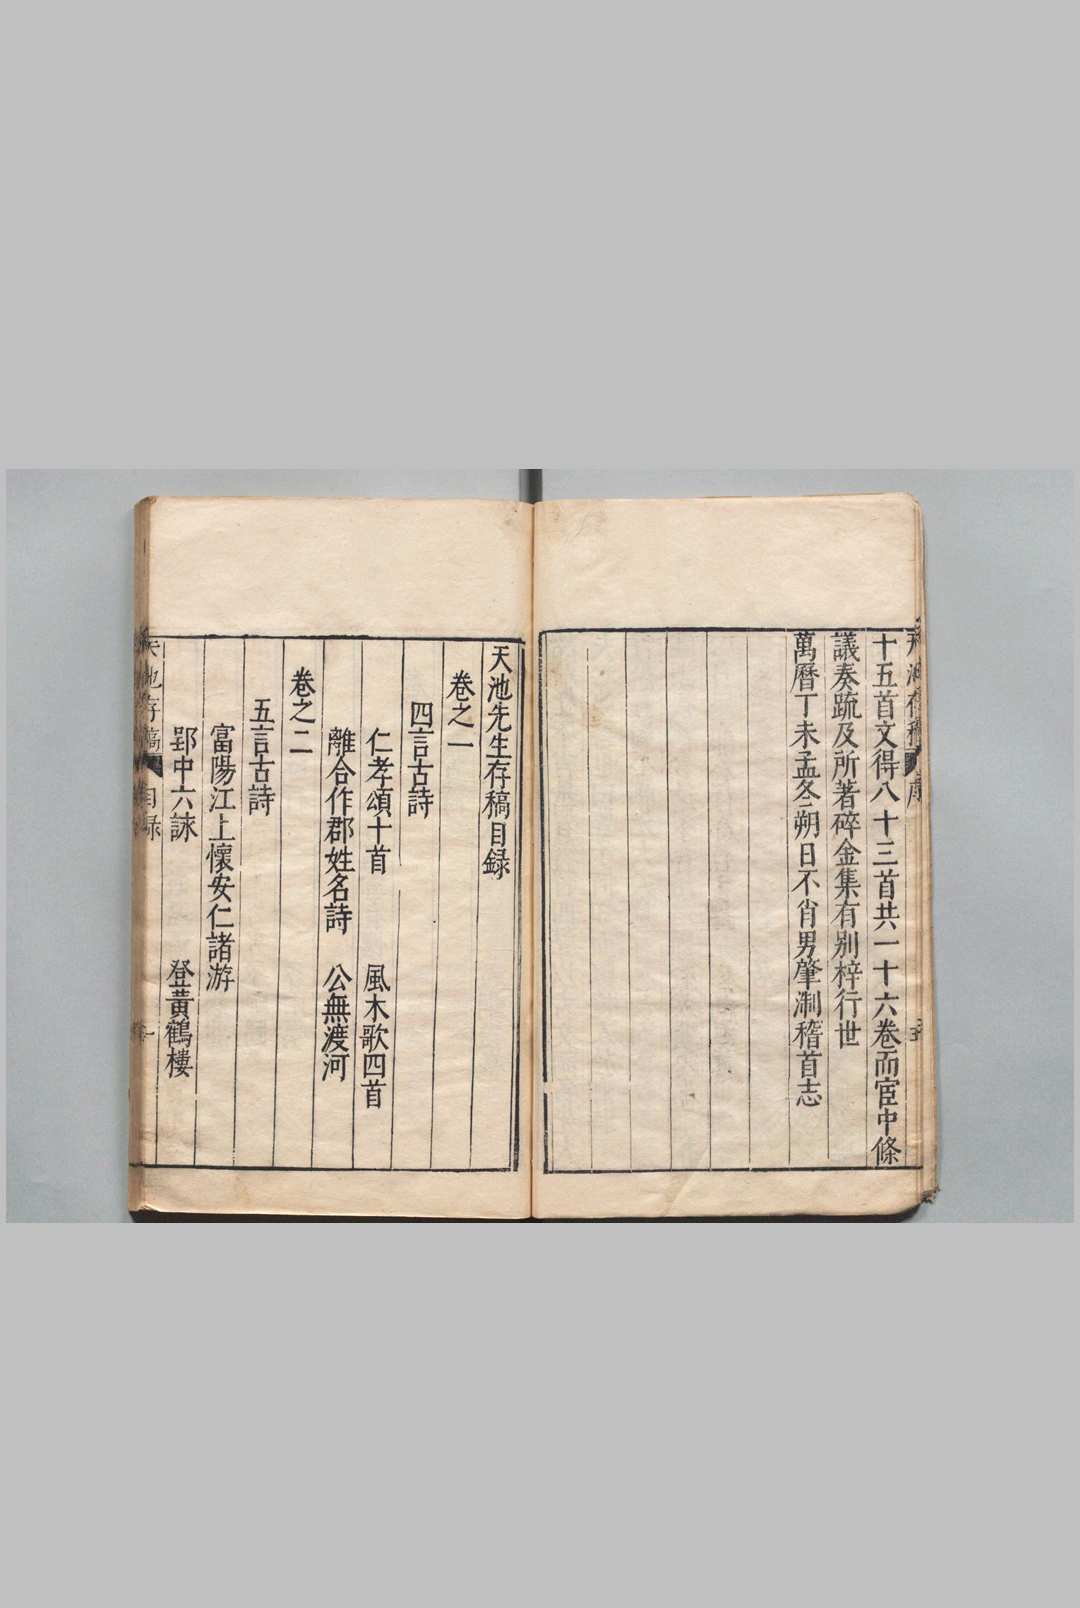 十五首文得八十三首共一十六卷而宦中條
議奏疏及所著碎金集有别梓行世
萬曆丁未孟冬朔日不肖男肇淛稽首志
天池先生存稿目録
卷之一
四言古詩
仁孝頌十首 風木歌四首
離合作郡姓名詩 公無渡河
卷之二
五言古詩
富陽江上懷安仁諸游
郢中六詠 登黃鶴樓
天池存稿 目録 一